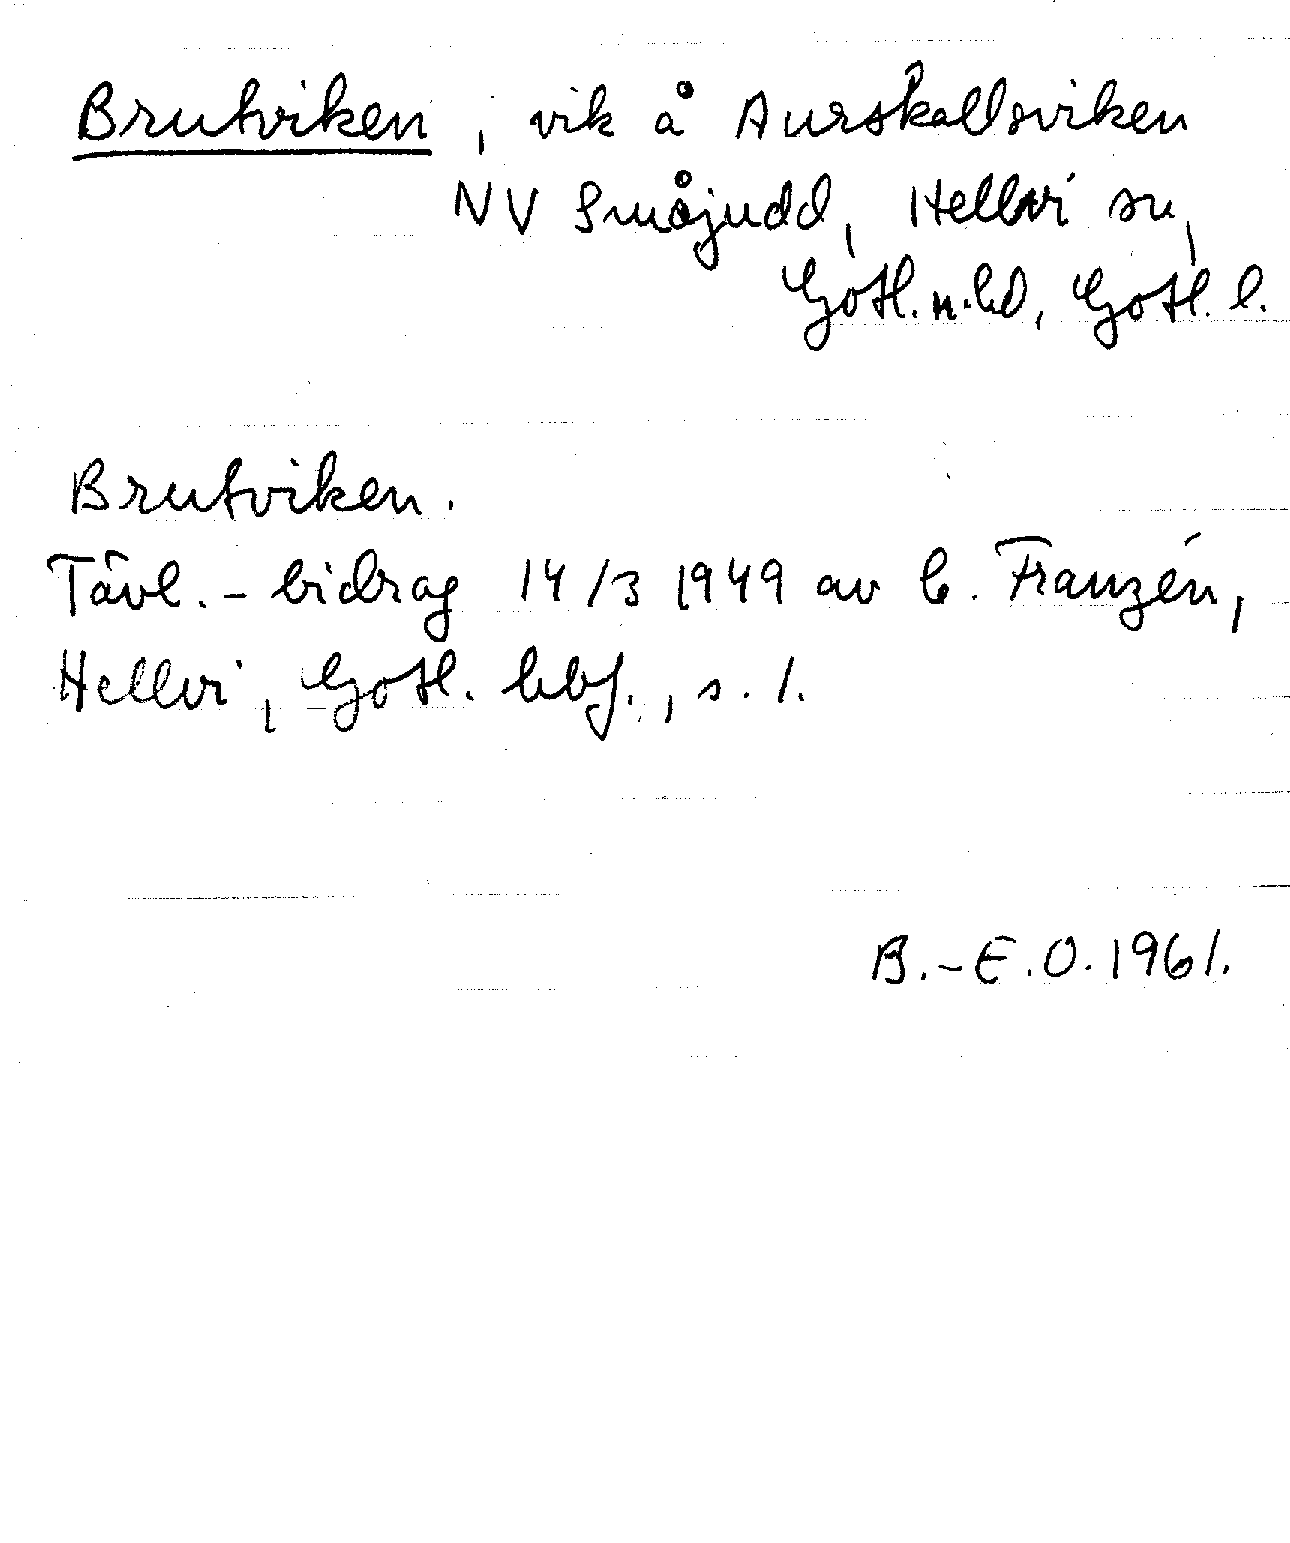 Brutviken, vik å Aurskallsviken
NV Småjudd, Hellvi sn,
Gotl. n. hd, Gotl. l.
Brutviken.
Tävl.-bidrag 14/3 1949 av C. Franzén,
Hellvi, Gotl. hbf., s. 1.
B.-E.O. 1961.